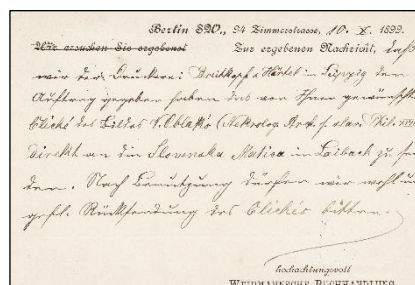 Berlin SW., 94 Zimmerstrasse, 10. X. 1899.
Wir ersuchen Sie ergebenst Zur ergebenen Nachricht, daß
wir der Druckerei Breitkopf & Härtel in Leipzig den
Auftrag gegeben haben das von Ihnen gewünschte
Cliché des Bildes V. Oblak's (Nekrolog Arch. f. slav. Phil.
direkt an die Slovenska Matica in Laibach zu sen-
den. Nach Benutzung dürfen wir wohl um
gefl. Rücksendung des Clichés bitten.
Hochachtungsvoll
WEIDMANNSCHE BUCHHANDLUNG